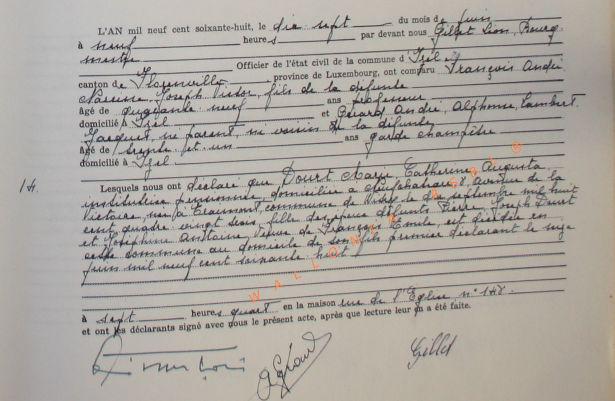 L'AN mil neuf cent soixante-huit, le dix sept du mois de juin
à neuf heures par devant nous Gillet Léon, Bourg-
mestre Officier de l'état civil de la commune d'Izel
canton de Florenville, province de Luxembourg, ont comparu François André
Narcisse, Joseph Victor, fils de la défunte
âgé de quarante neuf ans professeur
domicilié à Izel et Gérard André, Alphonse, Lambert
Jacquet, ne parent, ne voisin de la défunte,
âgé de trente et un ans garde champêtre
domicilié à Izel
14. Lesquels nous ont déclaré que Dourt Marie Catherine Augusta
institutrice pensionnée, domiciliée à Neufchâteau, avenue de la
Victoire, née à commune de le dix septembre mil huit
cent quatre vingt seis, fille des époux défunts Pierre Joseph Dourt
et Joséphine Antoine, Veuve de François Emile, est décédée en
cette commune au domicile de son fils premier déclarant le seize
juin mil neuf cent soixante huit
à sept heures quart en la maison rue de l'Eglise n° 148.
et ont les déclarants signé avec nous le présent acte, après que lecture leur en a été faite.
Gillet
WALLONIE